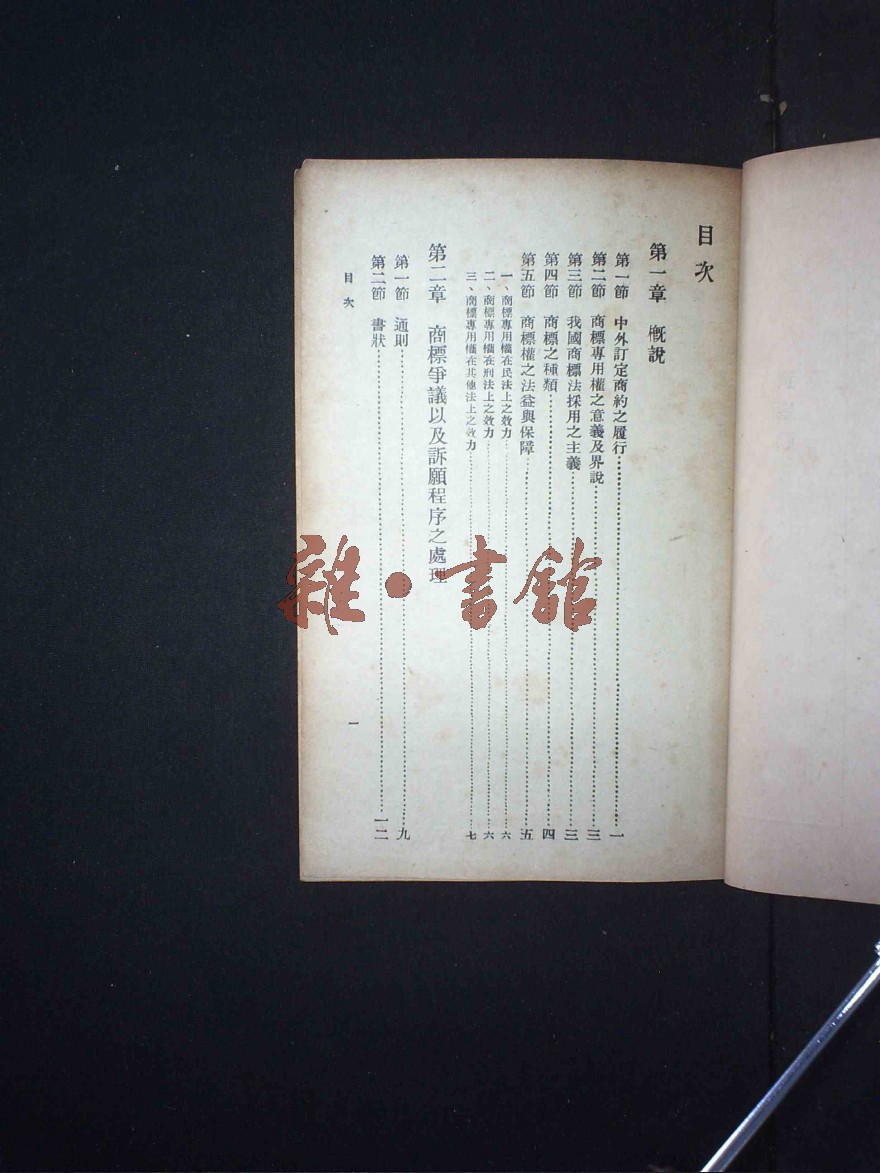 目次
第一章　槪說
第一節　中外訂定商約之履行…………一
第二節　商標專用權之意義及界說…………三
第三節　我國商標法採用之主義…………三
第四節　商標之種類…………四
第五節　商標權之法益與保障…………五
一、商標專用權在民法上之效力…………六
二、商標專用權在刑法上之效力…………六
三、商標專用權在其他法上之效力…………七
第二章　商標爭議以及訴願程序之處理
第一節　通則…………九
第二節　書狀…………一二
目次
一
雜·書館